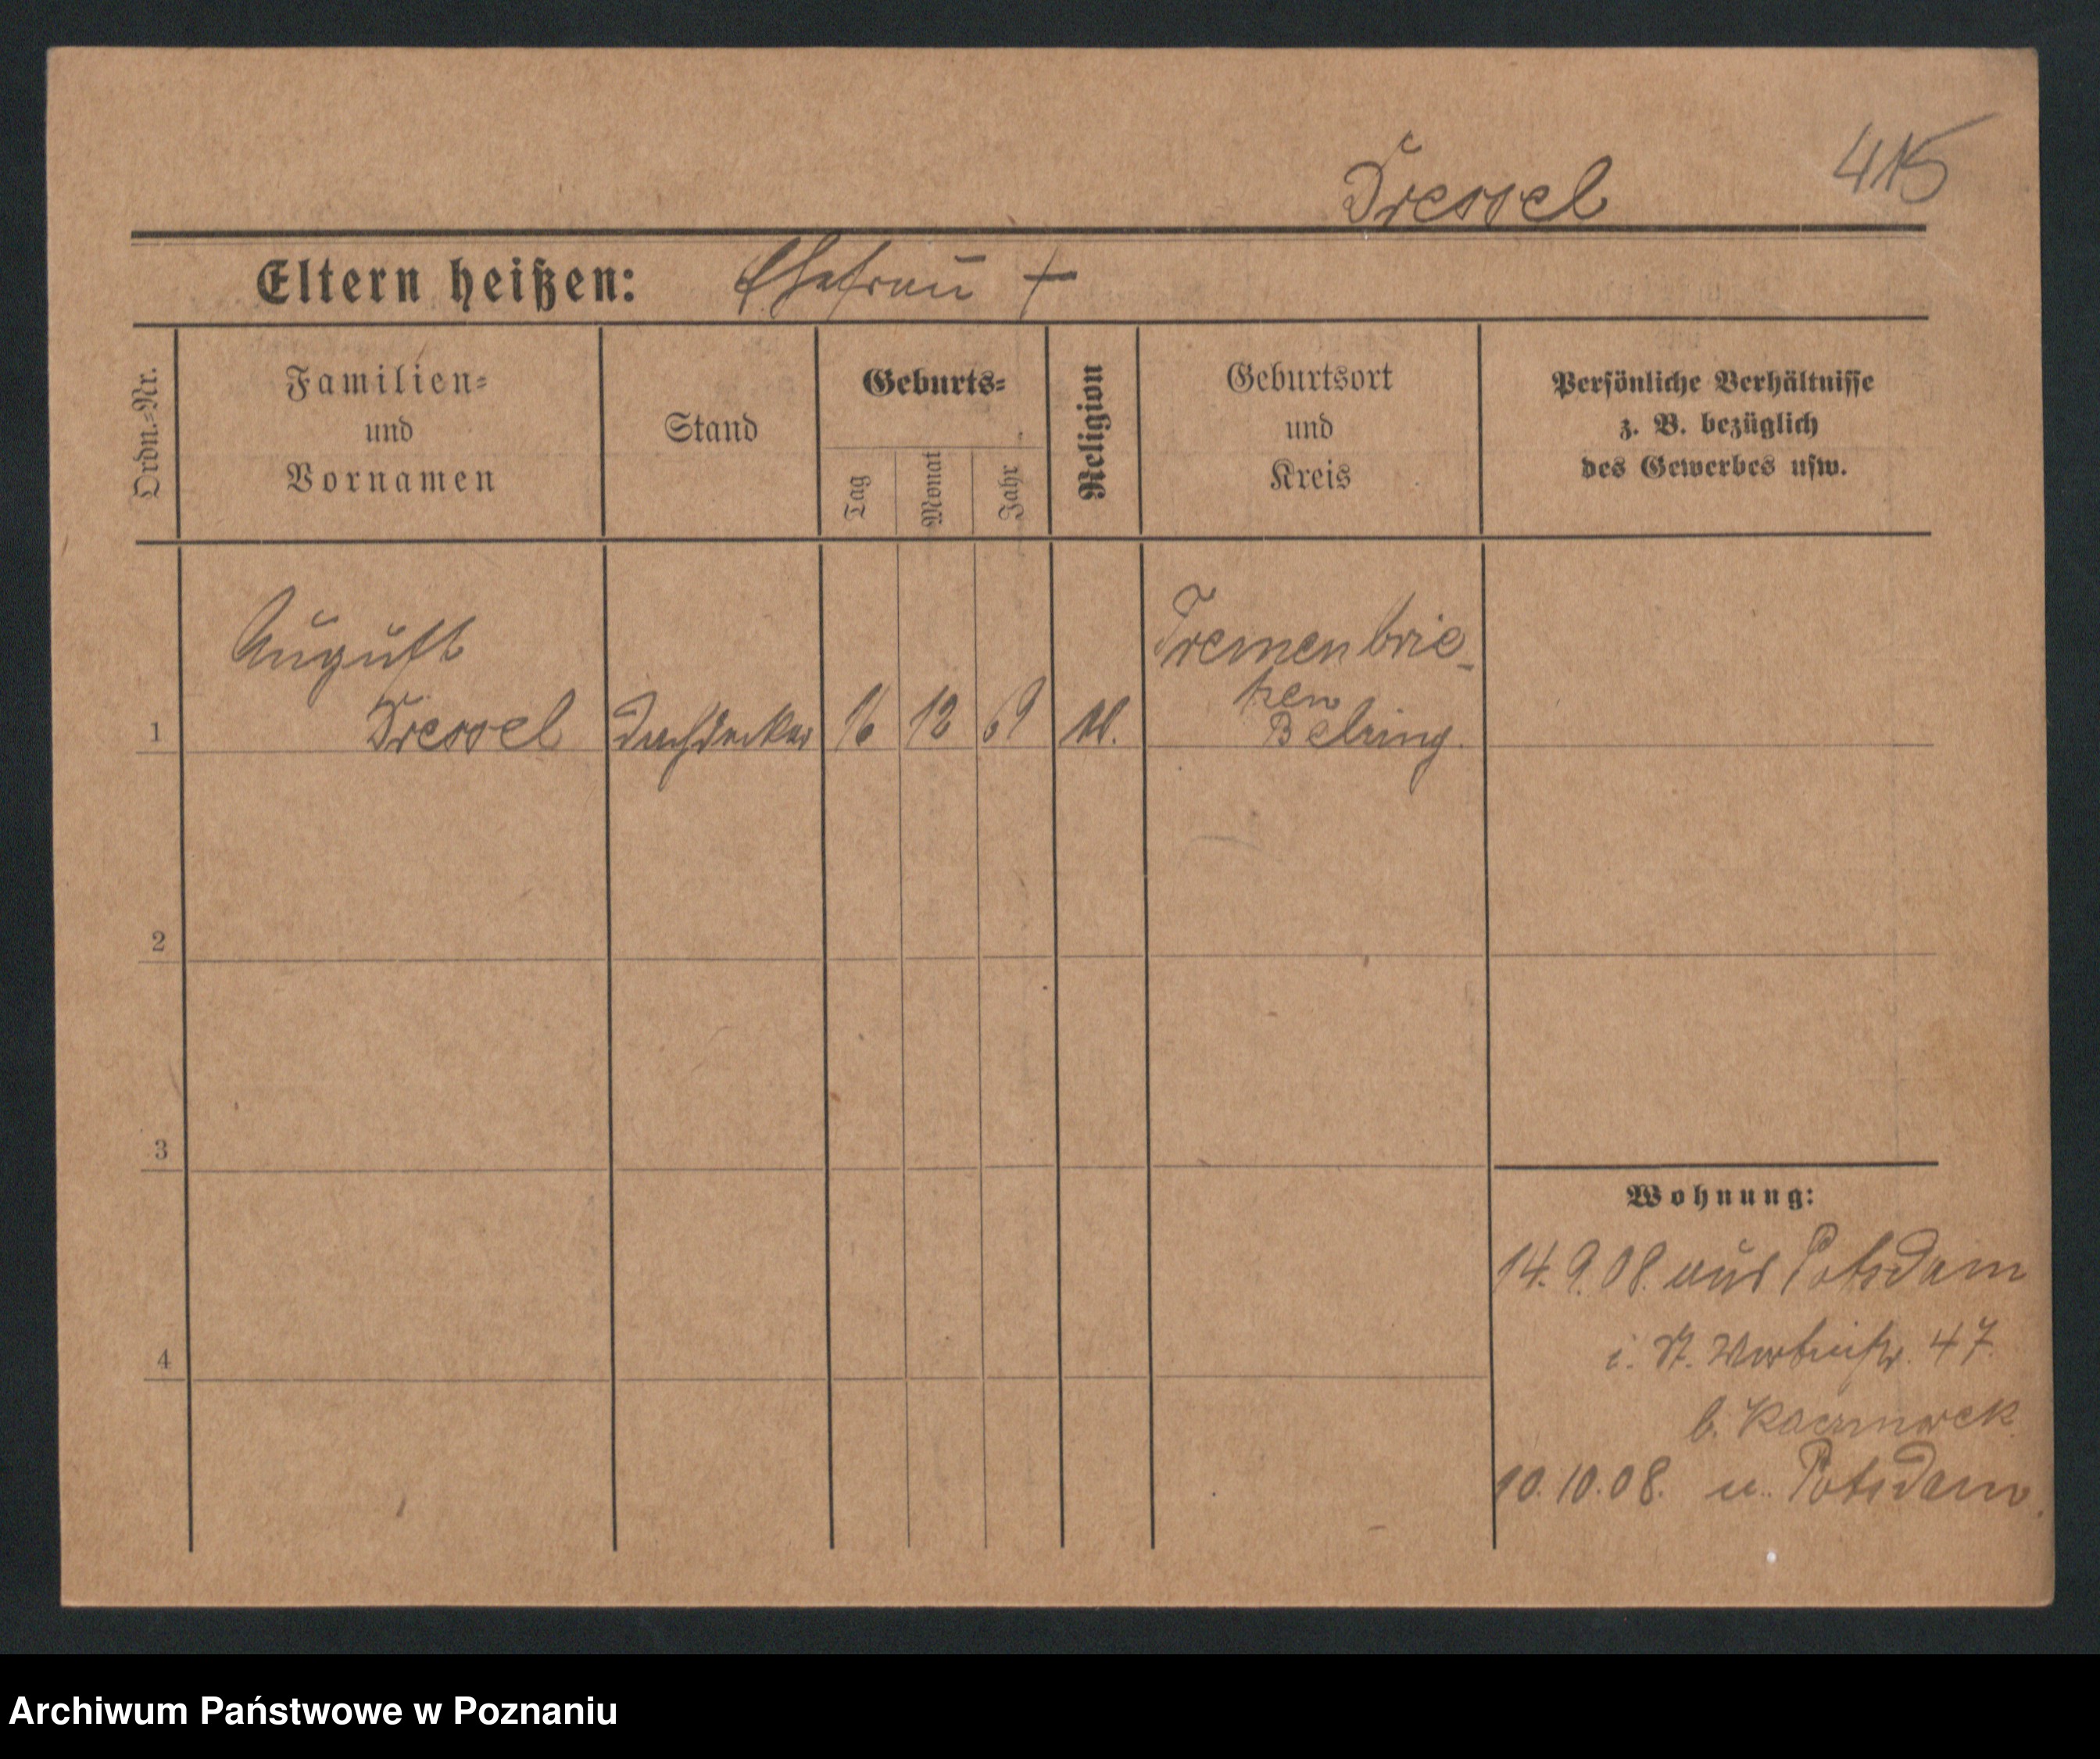 Dressel
415
Eltern heißen: Ehefrau +
Ordn.=Nr.
Familien=
und
Vornamen
Stand
Geburts=
Tag
Monat
Jahr
Religion
Geburtsort
und
Kreis
Persönliche Verhältnisse
z. B. bezüglich
des Gewerbes usw.
August
Dressel
1
Dachdecker
16
12
69
Tremenbrie-
tzen
Belzing.
2
3
4
Wohnung:
14. 9. 08. aus Potsdam
i. St. 47.
b. Kaczmarek
10. 10. 08. n. Potsdam.
Archiwum Państwowe w Poznaniu